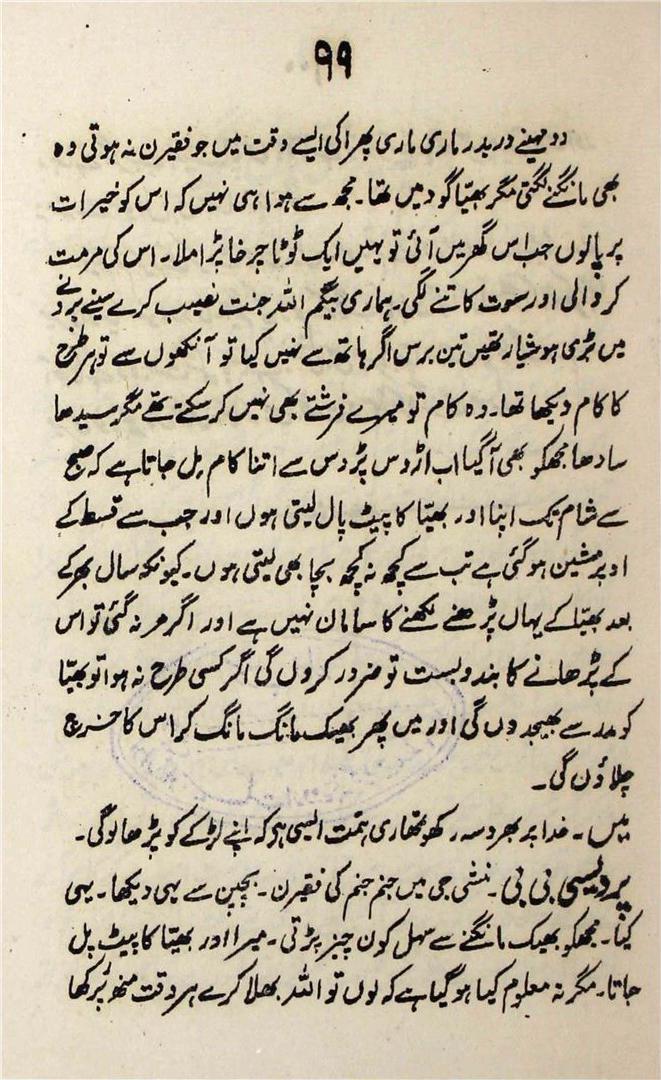 ۹۹
دو مہینے دربدر ماری ماری پھرا کی ایسے وقت میں جو فقیرن نہ ہوتی وہ
بھی مانگنے لگتی مگر بھیّا گود میں تھا۔ مجھ سے ہوا ہی نہیں کہ اس کو خیرات
پر پالوں جب اس گھر میں آئی تو یہیں ایک ٹوٹا چرخا پڑا ملا۔ اس کی مرمت
کروالی اور سوت کاتنے لگی۔ ہماری بیگم اللہ جنت نصیب کرے سینے پرونے
میں بڑی ہوشیار تھیں تین برس اگر ہاتھ سے نہیں کیا تو آنکھوں سے تو ہر طرح
کا کام دیکھا تھا۔ وہ کام تو میرے فرشتے بھی نہیں کر سکتے تھے مگر سیدھا
سادھا مجھکو بھی آگیا اب اڑوس پڑوس سے اتنا کام مل جاتا ہے کہ صبح
سے شام تک اپنا اور بھیّا کا پیٹ پال لیتی ہوں اور جب سے قسط کے
اوپر مشین ہوگئی ہے تب سے کچھ نہ کچھ بچا بھی لیتی ہوں۔ کیونکہ سال بھر کے
بعد بھیّا کے یہاں پڑھنے لکھنے کا سامان نہیں ہے اور اگر مر نہ گئی تو اس
کے پڑھانے کا بندوبست تو ضرور کروں گی اگر کسی طرح نہ ہوا تو بھیّا
کو مدرسے بھیجدوں گی اور میں پھر بھیک مانگ مانگ کر اس کا خرچ
چلاؤں گی۔
میں۔ خدا پر بھروسہ رکھو تمھاری ہمت ایسی ہی کہ اپنے لڑکے کو پڑھا لوگی۔
پردیسی بی بی۔ منشی جی میں جنم جنم کی فقیرن۔ بچپن سے یہی دیکھا۔ یہی
کیا۔ مجھکو بھیک مانگنے سے سہل کون چیز پڑتی۔ میرا اور بھیّا کا پیٹ پل
جاتا۔ مگر نہ معلوم کیا ہوگیا ہے کہ لوں تو اللہ بھلا کرے ہر وقت منھ پر رکھا